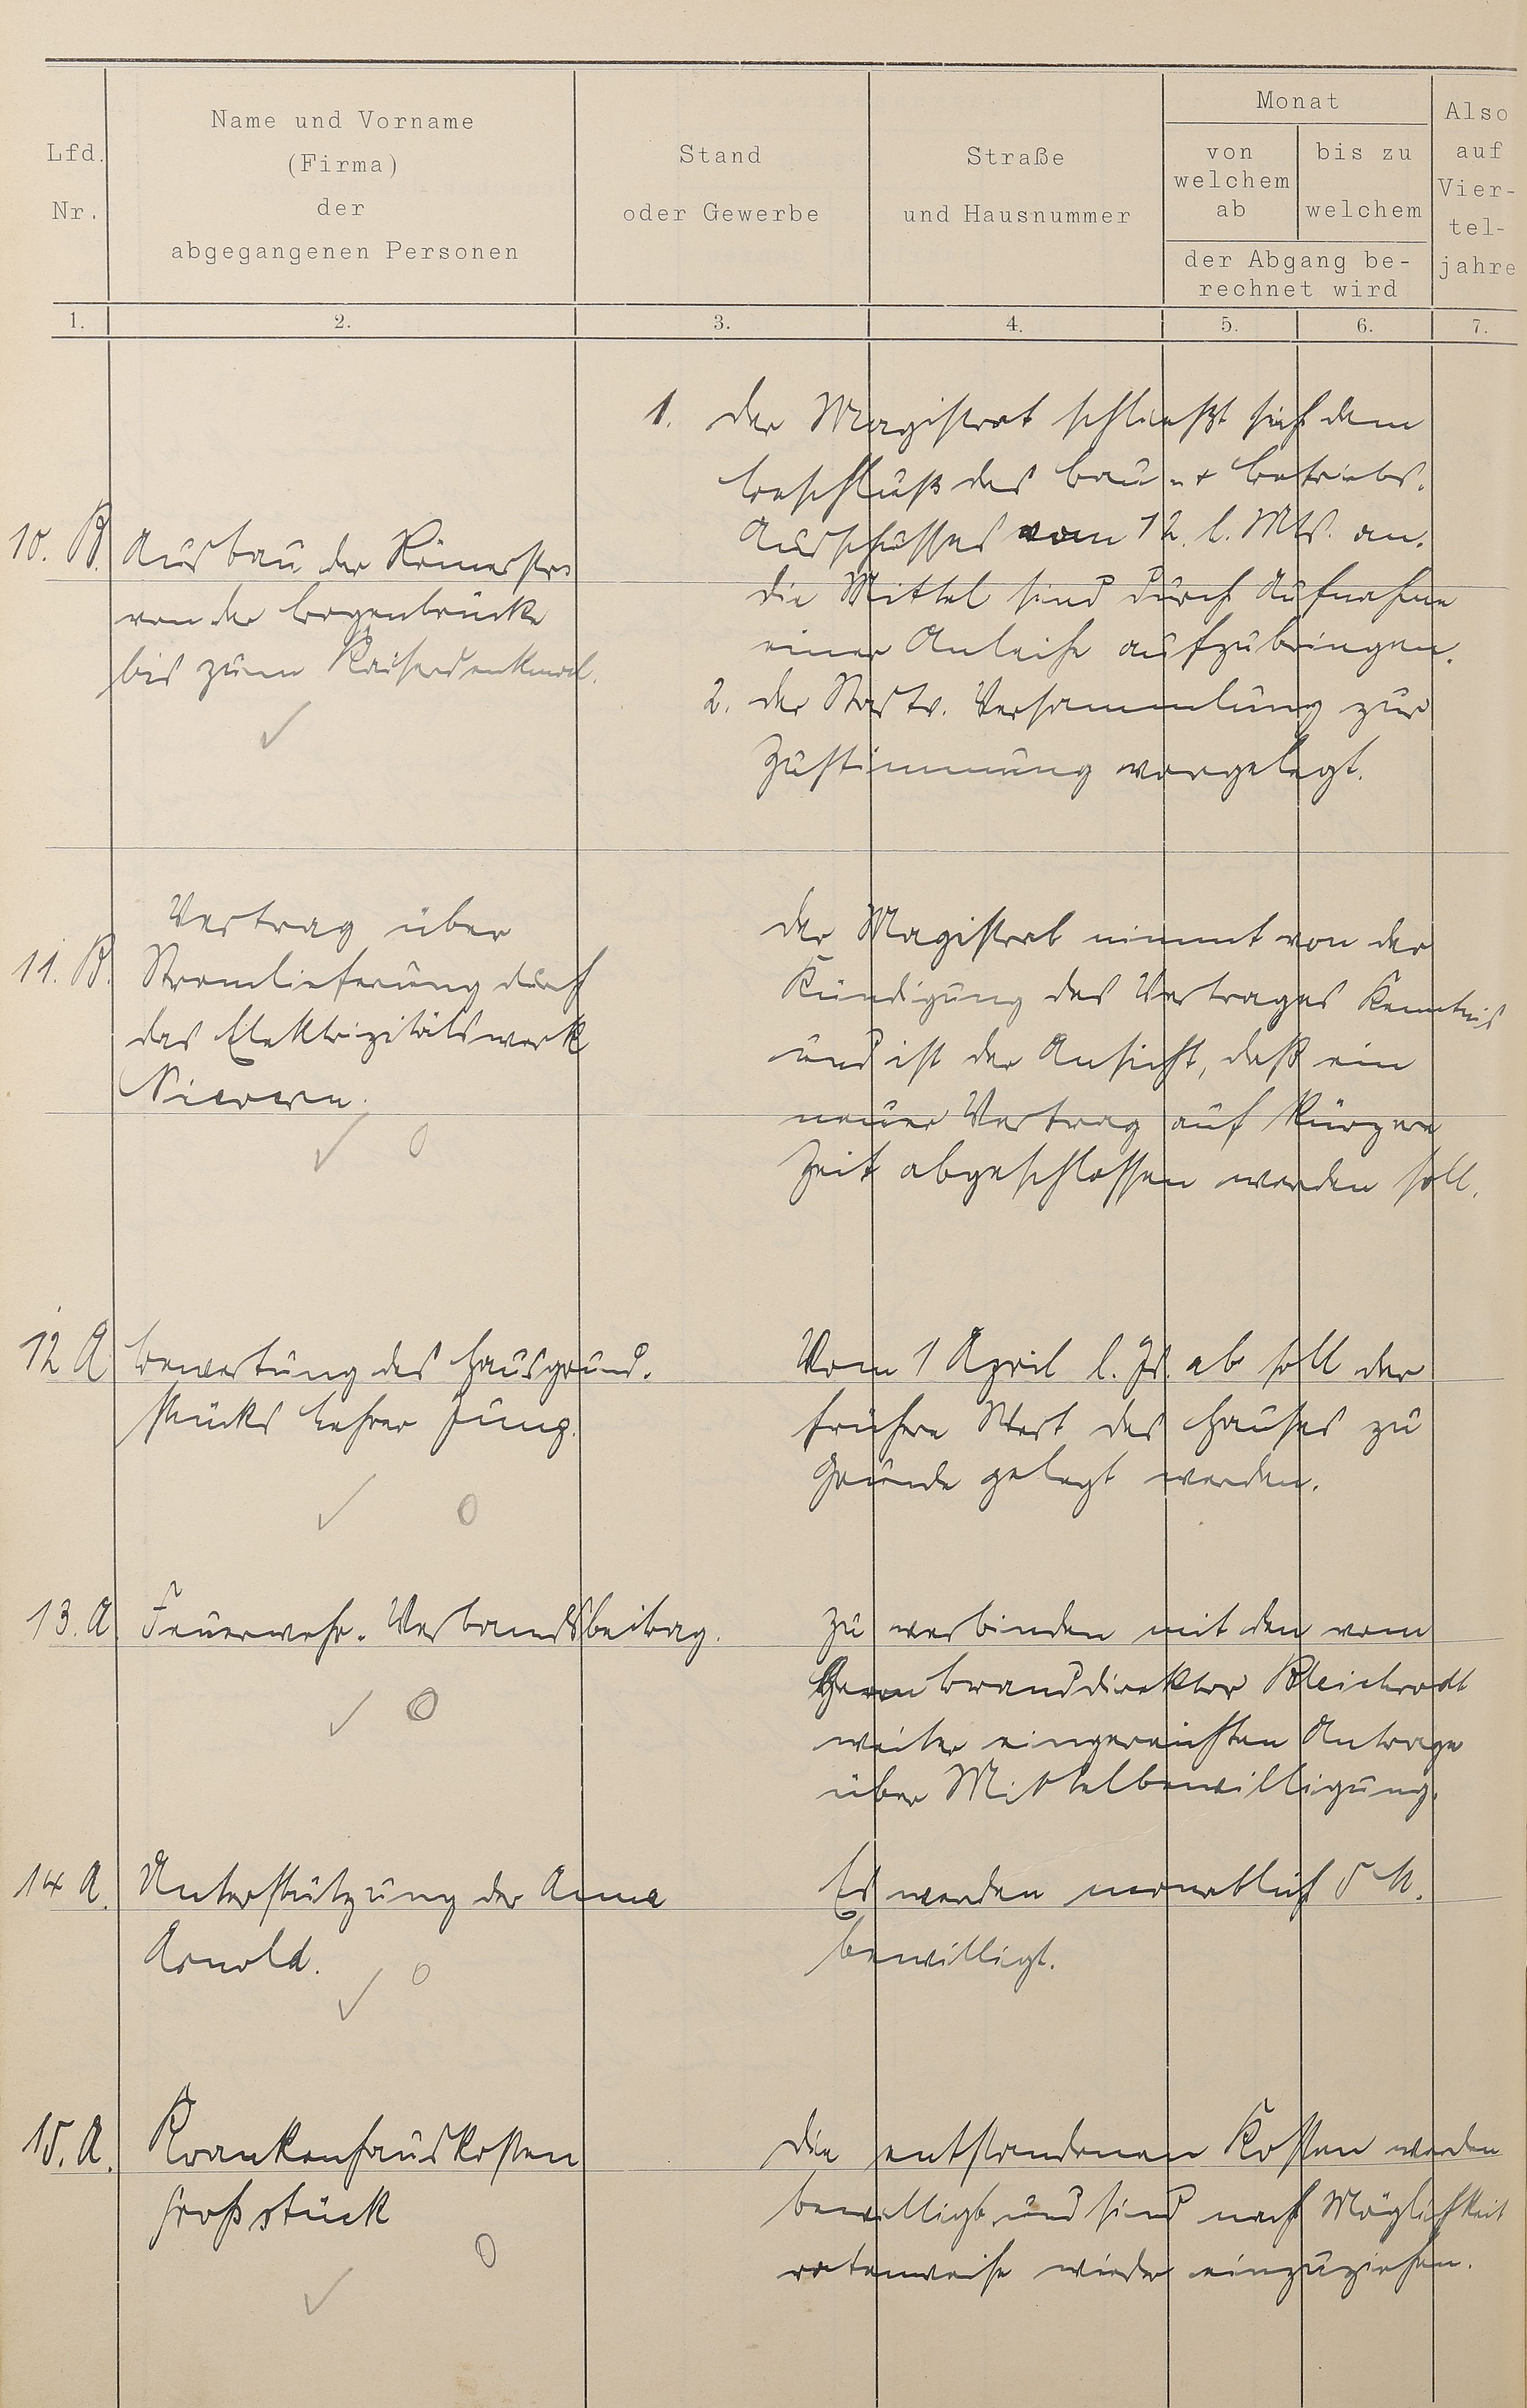 Lfd.
Nr.
Name und Vorname
(Firma)
der
abgegangenen Personen
Stand
oder Gewerbe
Straße
und Hausnummer
Monat
von
welchem
ab
bis zu
welchem
der Abgang be-
rechnet wird
Also
auf
Vier-
tel-
jahre
1. 2. 3. 4. 5. 6. 7.
10. B. Ausbau der Römerstr.
von der Bogenbrücke
bis zum Kaiserdenkmal.
1. Der Magistrat schließt sich dem
Beschluß des Bau- + Betriebs-
Ausschusses vom 12. l. Mts. an.
Die Mittel sind durch Aufnahme
einer Anleihe aufzubringen.
2. Der Stadtv. Versammlung zur
Zustimmung vorgelegt.
11. B. Vertrag über
Stromlieferung durch
das Elektrizitätswerk
Nievern.
Der Magistrat nimmt von der
Kündigung des Vertrages Kenntnis
und ist der Ansicht, daß ein
neuer Vertrag auf kürzere
Zeit abgeschlossen werden soll.
12 A Bewertung des Hausgrund-
stücks Lehrer Jung.
Vom 1 April l. Js. ab soll der
frühere Wert des Hauses zu
Grunde gelegt werden.
13. A. Feuerwehr-Verbandsbeitrag.
Zu verbinden mit den vom
Herrn Branddirektor Bleichrodt
weiter eingereichten Antrage
über Mittelbewilligung.
14 A. Unterstützung der Anna
Arnold.
Es werden monatlich 5 M.
bewilligt.
15. A. Krankenhauskosten
Großstück
Die entstandenen Kosten werden
bewilligt und sind nach Möglichkeit
ratenweise wieder einzuziehen.